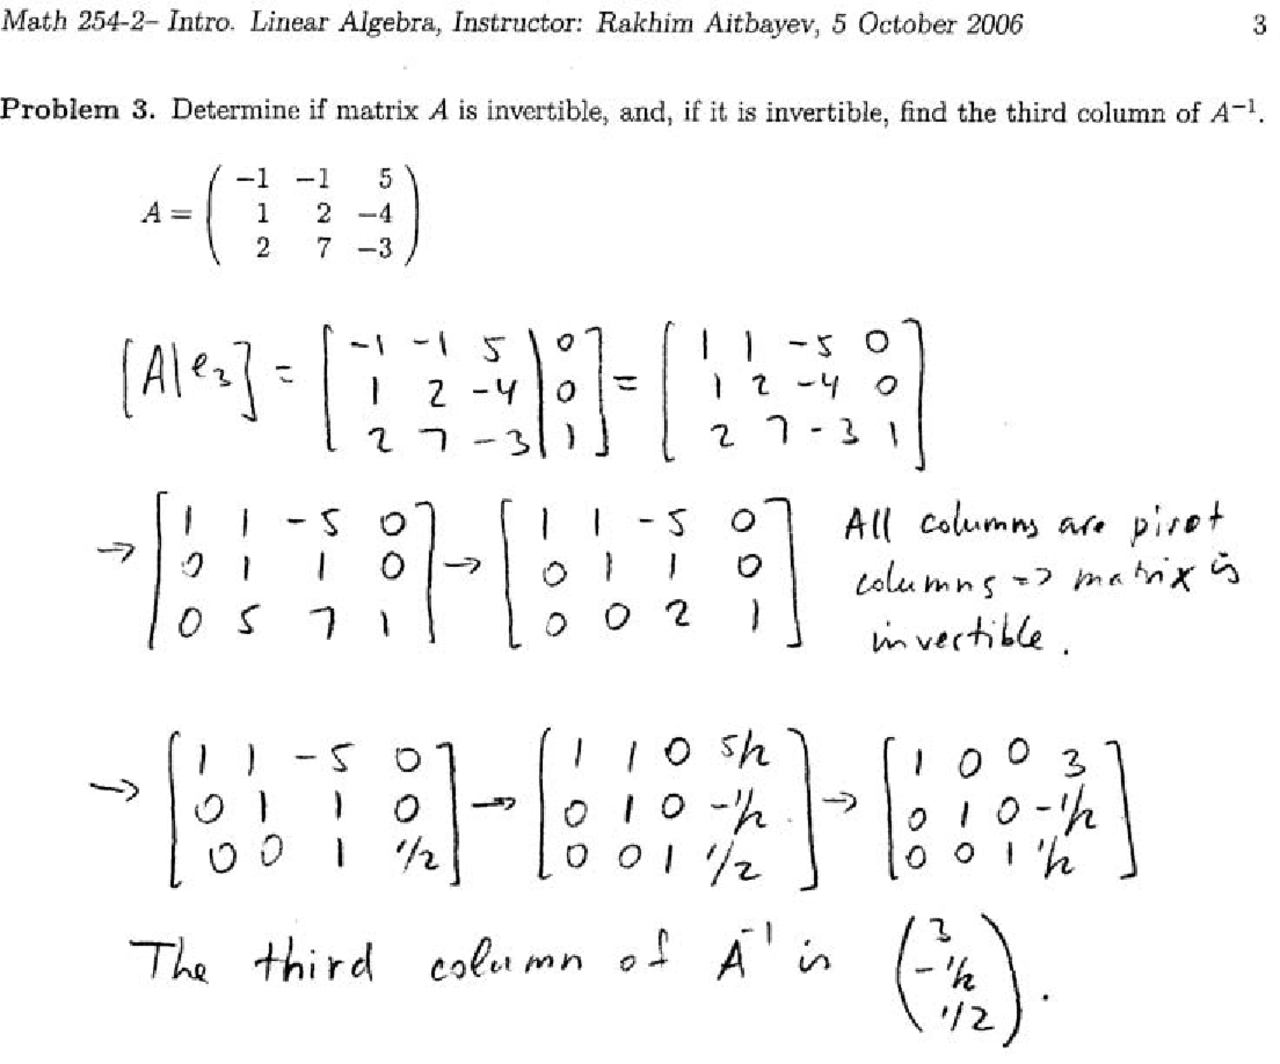 Math 254-2– Intro. Linear Algebra, Instructor: Rakhim Aitbayev, 5 October 2006 3
Problem 3. Determine if matrix A is invertible, and, if it is invertible, find the third column of A⁻¹.
−1 −1 5
A = 1 2 −4
2 7 −3
-1 -1 5 | 0 1 1 -5 0
[A|e₃] = 1 2 -4 | 0 = 1 2 -4 0
2 7 -3 | 1 2 7 -3 1
1 1 -5 0 1 1 -5 0 All columns are pivot
→ 0 1 1 0 → 0 1 1 0 columns => matrix is
0 5 7 1 0 0 2 1 invertible.
1 1 -5 0 1 1 0 5/2 1 0 0 3
→ 0 1 1 0 → 0 1 0 -1/2 → 0 1 0 -1/2
0 0 1 1/2 0 0 1 1/2 0 0 1 1/2
3
The third column of A⁻¹ is -1/2 .
1/2